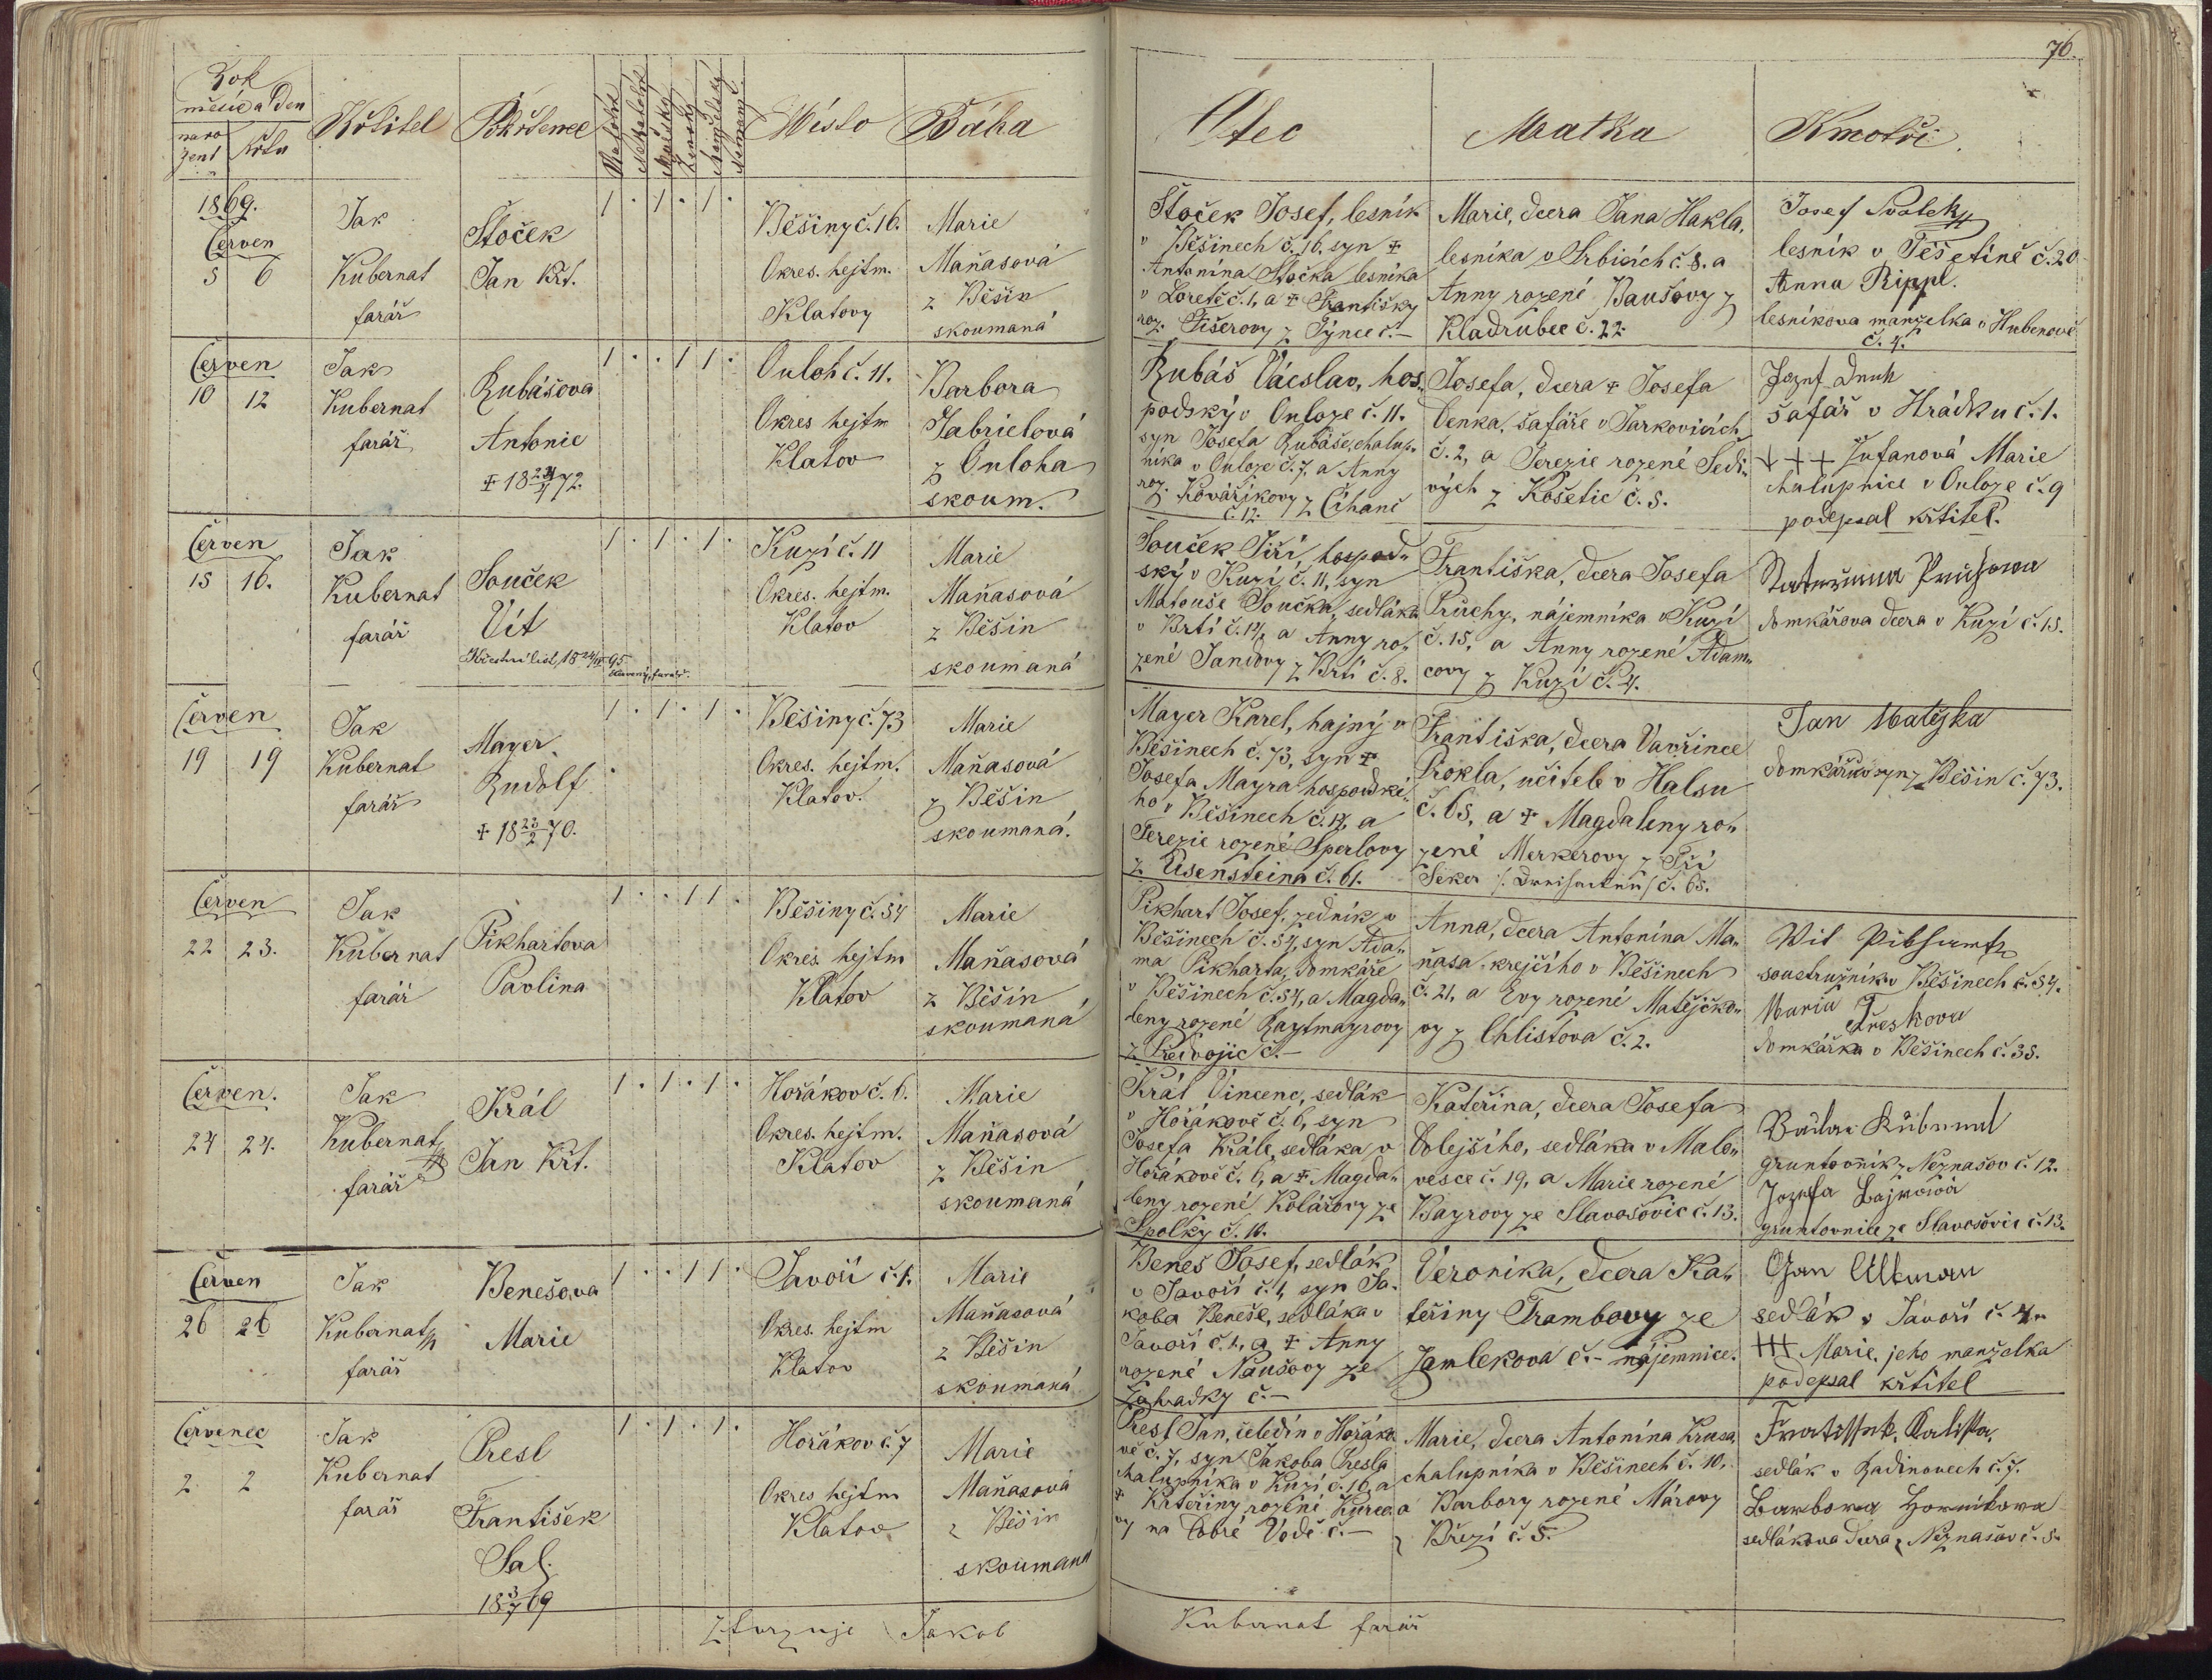 76.
Rok
měsíc a Den
naro
zení
křtu
Křtitel
Pokřtěnec
Katolík
Nekatolík
Mužský
Ženský
Manželský
Nemanž.
Místo
Bába
Otec
Matka
Kmotři.
1869.
Červen
5 6
Jak
Kubernat
farář
Stoček
Jan Křt.
1 . 1 . 1 .
Běšiny č. 16.
Okres. hejtm.
Klatovy
Marie
Maňasová
z Běšin
skoumaná
Stoček Josef, lesník
v Běšinech č. 16, syn +
Antonína Stočka lesníka
v Loretě č. 1, a + Františky
roz. Fišerovy z Týnce č. –
Marie, dcera Jana Hakla,
lesníka v Srbicích č. 8. a
Anny rozené Baušovy z
Kladrubec č. 22.
Josef Svatek
lesník v Těšetíně č. 20
Anna Rippl.
lesníkova manželka v Hubenově
č. 4.
Červen
10 12
Jak
Kubernat
farář
Rubášova
Antonie
+ 18 24/4 72.
1 . . 1 1 .
Ouloh č. 11.
Okres hejtm
Klatov
Barbora
Gabrielová
z Ouloha
skoum.
Rubáš Václav, hos-
podský v Ouloze č. 11.
syn Josefa Rubáše, chalup-
níka v Ouloze č. 7, a Anny
roz. Kovaříkovy z Číhaně
č. 12.
Josefa, dcera + Josefa
Denka, šafáře v Jarkovicích
č. 2, a Terezie rozené Šedi-
vých z Košetic č. 5.
Josef Denk
šafář v Hrádku č. 1.
+ + + Žufanová Marie
chalupnice v Ouloze č. 9
podepsal křtitel.
Červen
15 16.
Jak
Kubernat
farář
Souček
Vít
Křestní list, 18 24/IV 95
1 . 1 . 1 .
Kuzí č. 11
Okres. hejtm.
Klatov
Marie
Maňasová
z Běšin
skoumaná
Souček Jiří, hospod-
ský v Kuzí č. 11, syn
Matouše Součka, sedláka
v Brtí č. 14, a Anny ro-
zené Jandovy z Brtí č. 8.
Františka, dcera Josefa
Průchy, nájemníka v Kuzí
č. 15, a Anny rozené Adam-
covy z Kuzí č. 4.
domkářova dcera v Kuzí č. 15.
Červen
19 19
Jak
Kubernat
farář
Mayer
Rudolf
+ 18 23/2 70.
1 . 1 . 1 .
Běšiny č. 73
Okres. hejtm.
Klatov.
Marie
Maňasová
z Běšin
skoumaná.
Mayer Karel, hajný v
Běšinech č. 73, syn +
Josefa Mayra hospodské-
ho v Běšinech č. 17, a
Terezie rozené Sperlovy
z Eisensteina č. 61.
Františka, dcera Vavřince
Prokla, učitele v Halsu
č. 65, a + Magdaleny ro-
zené Merkerovy z Tří
Seker /: Dreihacken :/ č. 65.
Jan Matějka
domkářův syn z Běšin č. 73.
Červen
22 23.
Jak
Kubernat
farář
Pikhartova
Pavlina
1 . . 1 1 .
Běšiny č. 54
Okres hejtm
Klatov
Marie
Maňasová
z Běšin
skoumaná
Pikhart Josef, zedník v
Běšinech č. 54, syn Ada-
ma Pikharta, domkáře
v Běšinech č. 54, a Magda-
leny rozené Raytmayrovy
z Předvojic č. –
Anna, dcera Antonína Ma-
ňasa krejčího v Běšinech
č. 21, a Evy rozené Matějčko-
vy z Chlistova č. 2.
Vit Pikhart
soustružník v Běšinech č. 54.
Maria Třeskova
domkářka v Běšinech č. 35.
Červen.
24 24.
Jak
Kubernat
farář
Král
Jan Křt.
1 . 1 . 1 .
Hořákov č. 6.
Okres. hejtm.
Klatov
Marie
Maňasová
z Běšin
skoumaná
Král Vincenc, sedlák
v Hořákově č. 6, syn
Josefa Krále, sedláka v
Hořákově č. 6, a + Magda-
leny rozené Kolářovy ze
Spolky č. 16.
Kateřina, dcera Josefa
Dolejšího, sedláka v Malo-
vesce č. 19, a Marie rozené
Bayrovy ze Slavošovic č. 13.
gruntovník z Neznašov č. 12.
Jozefa
gruntovnice ze Slavošovic č. 13.
Červen
26 26
Jak
Kubernat
farář
Benešova
Marie
1 . . 1 1 .
Javoří č. 1.
Okres. hejtm
Klatov
Marie
Maňasová
z Běšin
skoumaná
Beneš Josef, sedlák
v Javoří č. 1, syn Ja-
koba Beneše, sedláka v
Javoří č. 1, a + Anny
rozené Naušovy ze
Zahradky č. –
Veronika, dcera Ka-
teřiny Trambovy ze
Zamlekova č. – nájemnice.
Jan Ultman
sedlák v Javoří č. 4.
+++ Marie, jeho manželka
podepsal křtitel
Červenec
2 2
Jak
Kubernat
farář
Presl
František
Sal.
18 3/7 69
1 . 1 . 1 .
Hořákov č. 7
Okres hejtm
Klatov
Marie
Maňasová
z Běšin
skoumaná
Presl Jan, čeledín v Hořáko-
vě č. 7, syn Jakoba Presla
chalupníka v Kuzí č. 10, a
+ Kateřiny rozené Kurco-
vy na Dobré Vodě č. –
Marie, dcera Antonína Krusa,
chalupníka v Běšinech č. 10,
a Barbory rozené Márovy
z Březí č. 5.
Frantissek Kalista,
sedlák v Radinovech č. 7.
Barbora Hornikova
sedlákova dcera z Neznašov č. 5.
Ztvrzuje Jakob
Kubernat farář